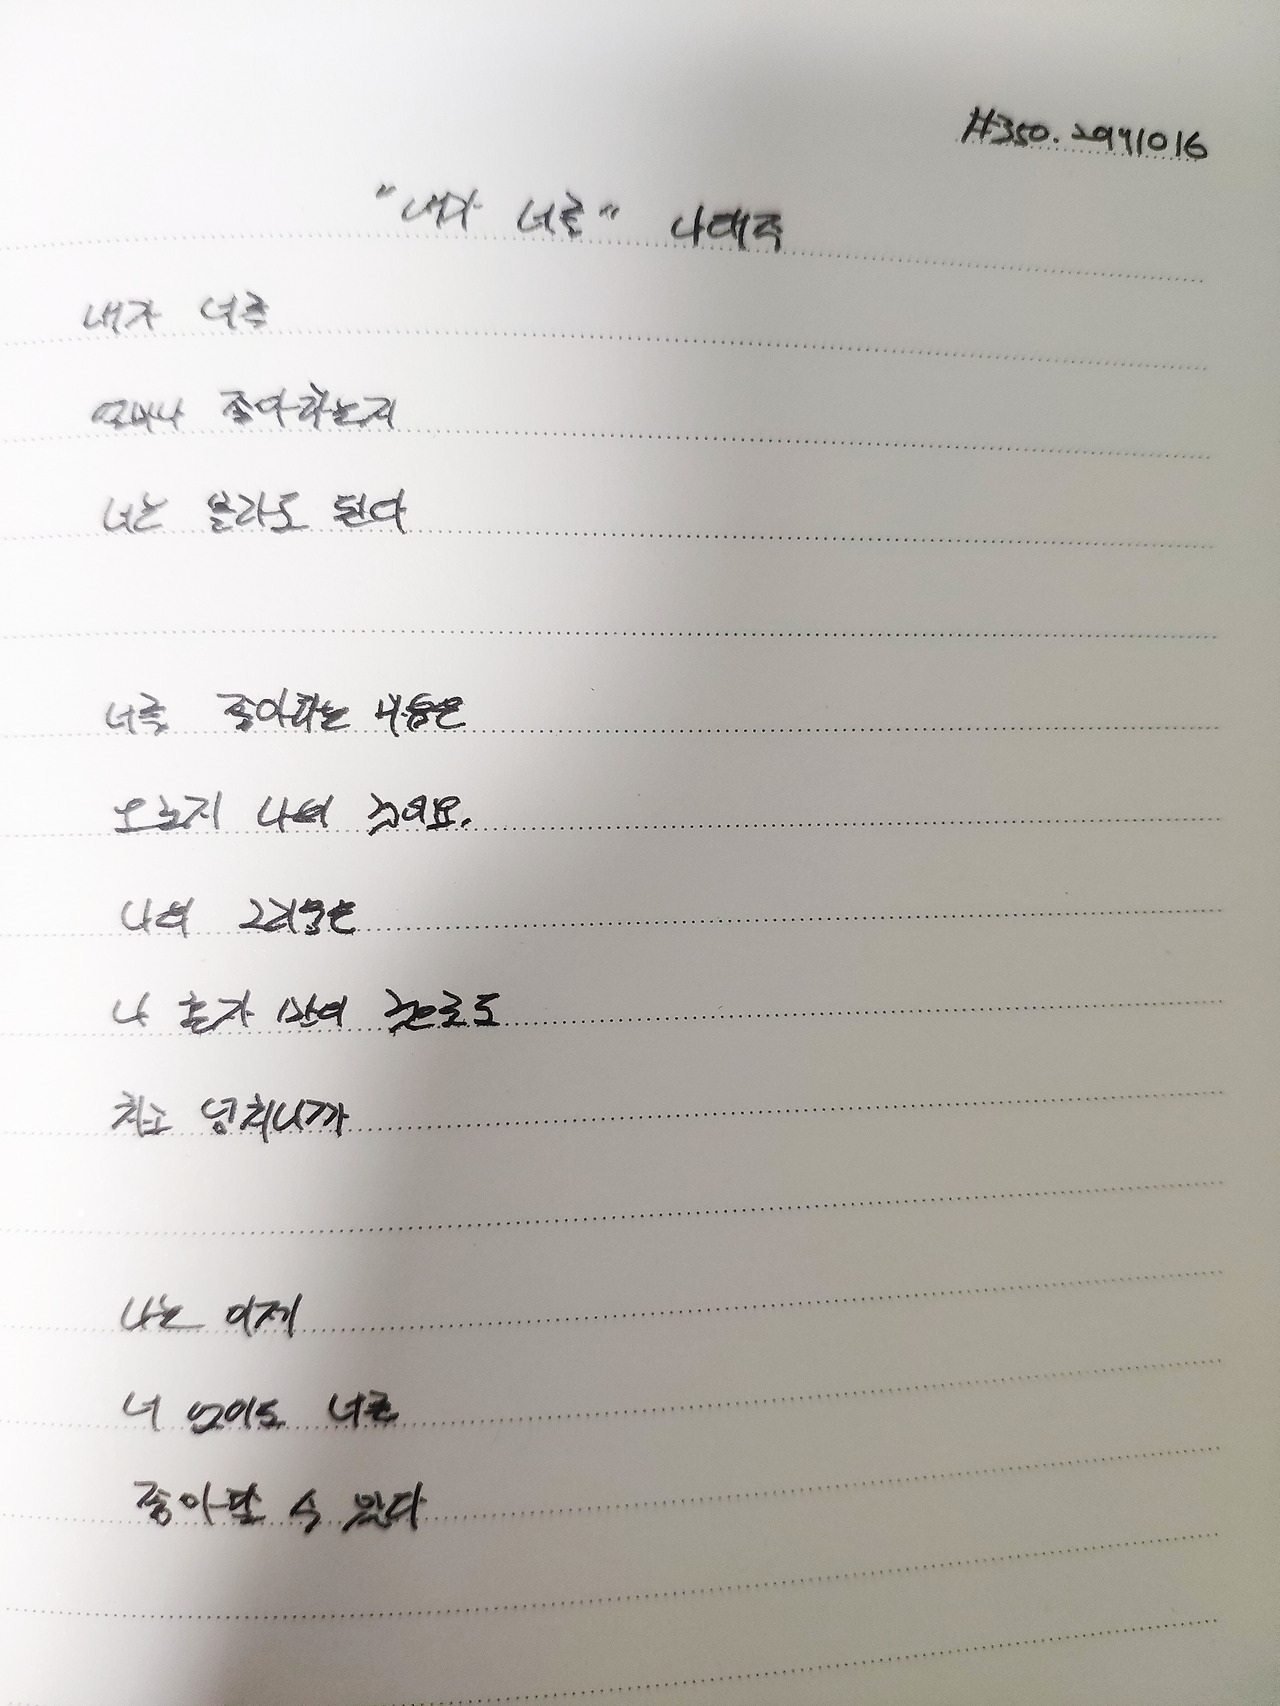 #350. 20191016
"내가 너를" 나태주
내가 너를
얼마나 좋아하는지
너는 몰라도 된다
너를 좋아하는 마음은
오로지 나의 것이요,
나의 그리움은
나 혼자 만의 것으로도
차고 넘치니까
나는 이제
너 없이도 너를
좋아할 수 있다